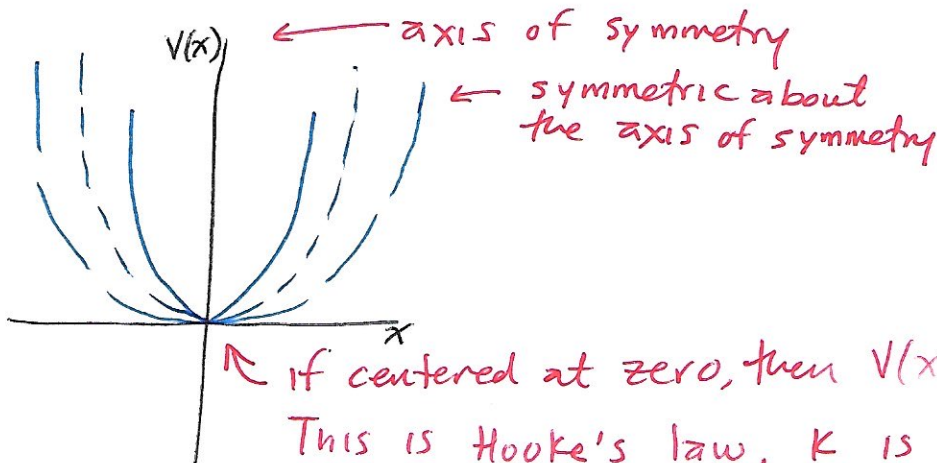 V(x)
← axis of symmetry
← symmetric about
the axis of symmetry
x
↖ if centered at zero, then V(x
This is Hooke's law. K is